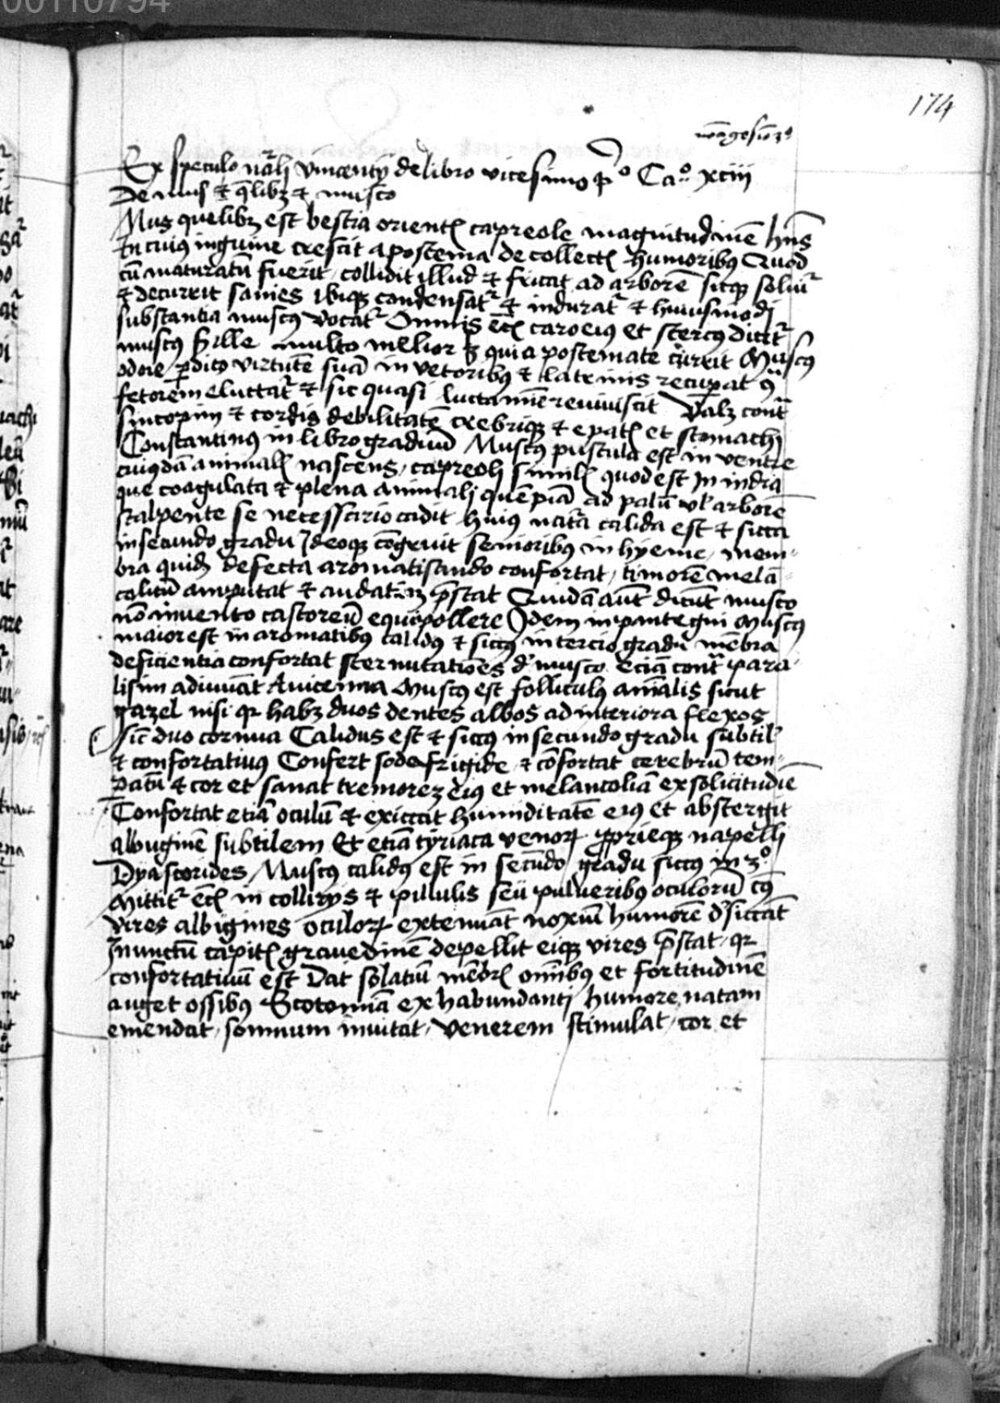 00110794
174
Ex speculo nãli vincentij de libro vicesimo pº Caº xciii
De mus et qlibz et musco
Mus quelibz est bestia orient capreole magnitudinẽ hñs
In cuius inguine crescit apostema de collect humoribus Quod
cũ maturatũ fuerit collidit illud et fricat ad arborẽ sicqz soluit
et decurrit sanies ibiqz condensat et indurat et huiusmodi
substantia muscus vocat Omnis etc caro eius et stercus dicit
muscus Sille multo melior qui a postemate currit Muscus
odore perdito virtutẽ suã in vetoribus et latrinis recuperat
fetorem eluctat et sic quasi luctamine reviviscit Valz contra
sincopim et cordis debilitatẽ crebriqz et epatis et stomachi
Constantinus in libro graduũ Muscus pustula est in ventre
cuiusdã animal nascens capreoli simil quod est in india
que coagulata et plena animali quẽpiã ad palũ vl arborẽ
scalpente se necessario cadit huius natã calida est et sicca
in secundo gradu Ideoqz congruit senioribus in hyeme mem-
bra quidẽ defecta aromatisando confortat timorẽ melã-
colicũ amputat et audatiã prestat Quidã aut dicũt musco
nõ invento castoreũ equipollere Idem in pantegni Muscus
maior est in aromatibus calidus et siccus in tercio gradu mẽbra
deficientia confortat sternutationes de musco eciã contra para-
lisim adiuvãt Avicenna Muscus est folliculus aĩalis sicut
gazel nisi qr habz duos dentes albos ad interiora flexos
sic duo cornua Calidus est et siccus in secundo gradu subtil
et confortativus Confert sode frigide et cõfortat cerebrũ tem-
patũ et cor et sanat tremorez eius et melancoliã ex solicitudiẽ
Confortat etiã oculũ et exiccat humiditatẽ eius et abstergit
albuginẽ subtilem Et etiã tyriaca venor pprieqz napelli
Dyascorides Muscus calidus est in secũdo gradu siccus in 3º
Mittit etc in collirijs et pululis seũ pulveribus oculorũ
vires albigines oculor extenuãt noxiũ humorẽ dsiccãt
Inunctũ capit gravedinẽ depellit eiqz vires prestat qr
confortativũ est Dat solatiũ mẽbris omibus et fortitudinẽ
auget ossibus Scotomiã ex habundanti humore natam
emendat somnum invitat venerem stimulat cor et